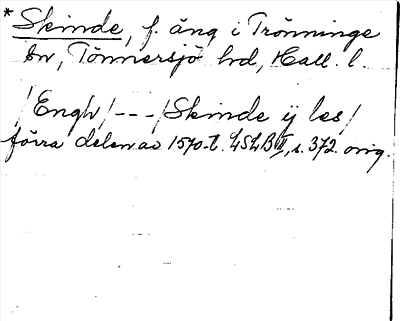 * Skinde, f. äng i Trönninge
sn, Tönnersjö hd, Hall. l.
/Engh/---/Skinde ij les/
förra delen av 1570-t. LSLB II, s. 372. orig.